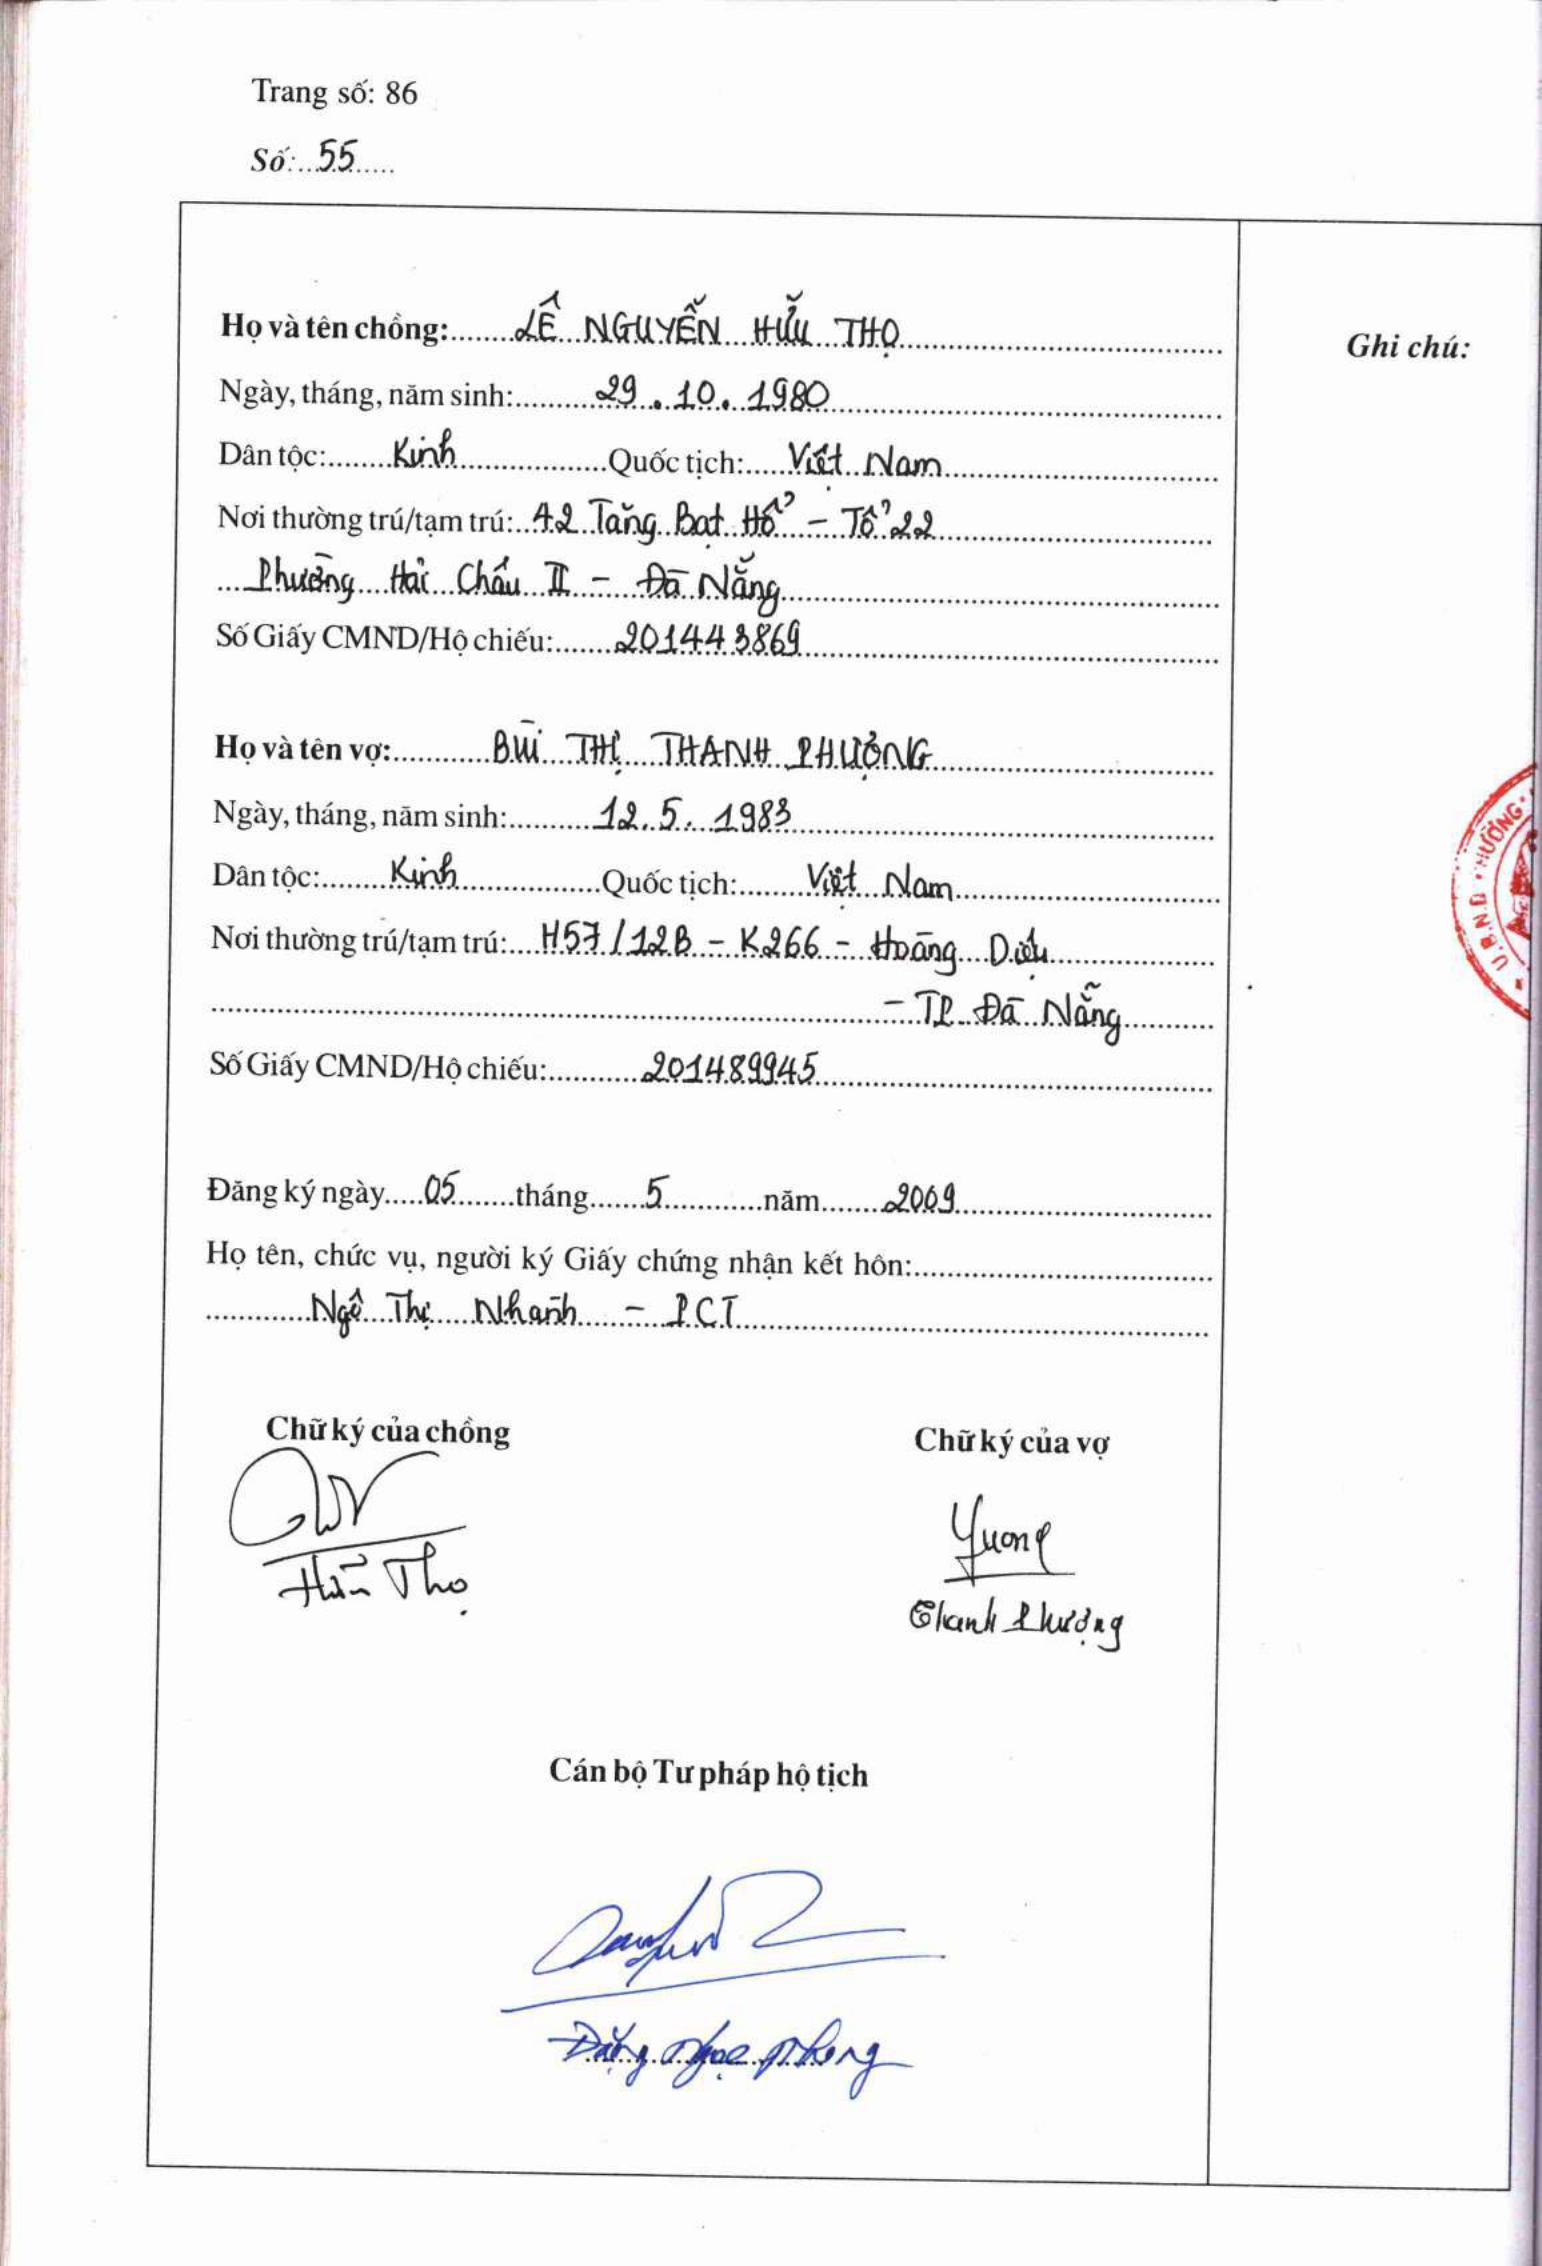 Trang số: 86
Số: 55
Họ và tên chồng: LÊ NGUYỄN HỮU THỌ
Ghi chú:
Ngày, tháng, năm sinh: 29.10.1980
Dân tộc: Kinh Quốc tịch: Việt Nam
Nơi thường trú/tạm trú: 42 Tăng Bạt Hổ - Tổ 22
Phường Hải Châu II - Đà Nẵng
Số Giấy CMND/Hộ chiếu: 201443869
Họ và tên vợ: BÙI THỊ THANH PHƯỢNG
Ngày, tháng, năm sinh: 12.5.1983
Dân tộc: Kinh Quốc tịch: Việt Nam
Nơi thường trú/tạm trú: H57/12B - K266 - Hoàng Diệu
- TP Đà Nẵng
Số Giấy CMND/Hộ chiếu: 201489945
Đăng ký ngày 05 tháng 5 năm 2009
Họ tên, chức vụ, người ký Giấy chứng nhận kết hôn:
Ngô Thị Nhành - PCT
Chữ ký của chồng Chữ ký của vợ
Hữu Thọ
Thanh Phượng
Cán bộ Tư pháp hộ tịch
Đặng Ngọc Phong
U.B.N.D PHƯỜNG